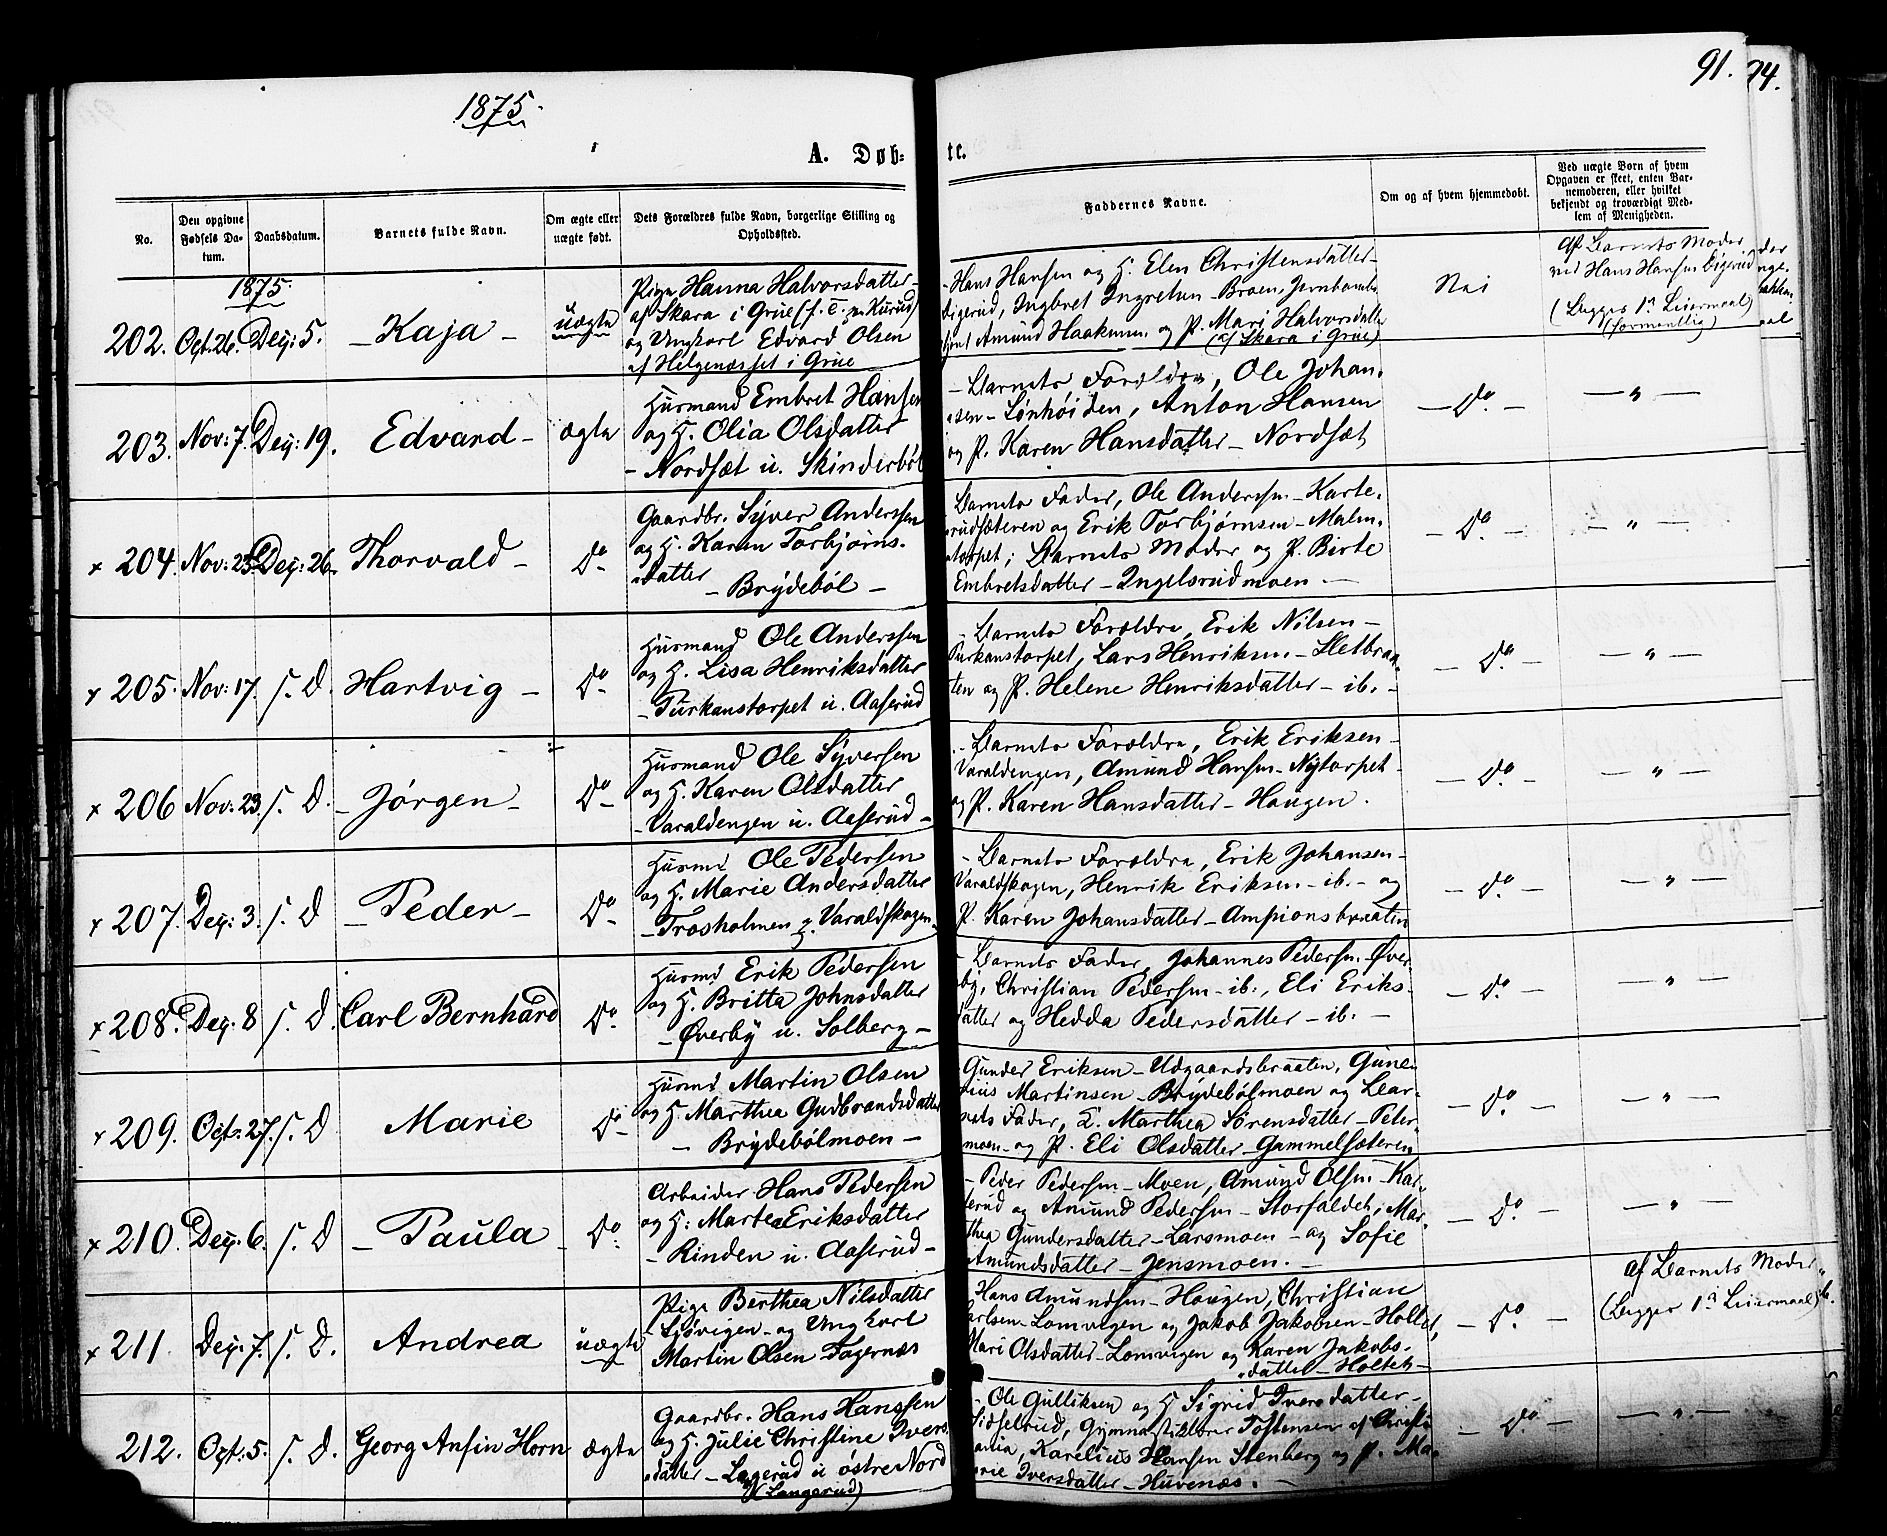 1875.
91.
94.
A. Døb-
te.
No.
Den opgivne Fødsels Da-tum.
Daabsdatum.
Barnets fulde Navn.
Om ægte eller uægte født.
Dets Forældres fulde Navn, borgerlige Stilling og Opholdssted.
Faddernes Navne.
Om og af hvem hjemmedøbt.
Ved uægte Børn af hvem Opgaven er skeet, enten Bar-nemoderen, eller hvilket bekjendt og troværdigt Med-lem af Menigheden.
1875.
202. Oct. 26. Dec: 5. - Kaja - uægte
Pige Hanna Halvorsdatter -
af Skara i Grue (f. E. p. Kurud)
og Ungkarl Edvard Olsen
af Helgenæsset i Grue
- Hans Hansen og H. Elen Christensdatter -
Digerud, Ingbret Ingretsen - Broen,
Amund Haakensen og P. Mari Halvorsdatter
(af Skara i Grue)
Nei
af Barnets Moder
ved Hans Hansen Digerud
(Begges 1ste Leiermaal)
(formentlig)
203. Nov: 7. Dec: 19. Edvard - ægte
Husmand Embret Hansen
og H. Olia Olsdatter
- Nordsæt u. Skinderbøl
- Barnets Forældre, Ole Johan-
sen - Lønhøiden, Anton Hansen
og P. Karen Hansdatter - Nordsæt
- Do. -
- " -
x 204. Nov: 25. Dec: 26. Thorvald - Do
Gaardbr. Syver Anderssen
og H. Karen Torbjørns-
datter
- Brydebøl -
Barnets Fader, Ole Anderssen - Karte-
rudsæteren og Erik Torbjørnsen - Malm-
torpet; Barnets Moder og P. Birte
Embretsdatter - Ingelsrudmoen. -
- Do. -
- " -
x 205. Nov: 17. s. D. Hartvig - Do
Husmand Ole Anderssen
og H. Lisa Henriksdatter
- Purkanstorpet u. Aaserud
- Barnets Forældre, Erik Nilsen -
Purkanstorpet, Lars Henriksen - Sletbraa-
ten og P. Helene Henriksdatter - ib. -
- Do. -
- " -
x 206 Nov: 23. s. D. - Jørgen - Do
Husmand Ole Syversen
og H. Karen Olsdatter
- Varaldengen u. Aaserud -
- Barnets Forældre, Erik Eriksen -
Varaldengen, Amund Hansen - Nytorpet -
og P. Karen Hansdatter - Haugen.
- Do. -
- " -
x 207. Dec: 3. s. D - Peder - Do
Husmd Ole Pedersen
og H. Marie Andersdatter
- Trosholmen p. Varaldskogen.
- Barnets Forældre, Erik Johansen -
Varaldskogen, Henrik Eriksen - ib. - og
P. Karen Johansdatter - Ampionsbraaten
- Do. -
- " -
x 208. Dec: 8 s. D. Carl Bernhard Do.
Husmd Erik Pedersen
og H. Britta Johnsdatter
- Øverby u. Solberg -
- Barnets Fader, Johannes Pedersen - Øver-
by, Christian Pedersen - ib., Eli Eriks-
datter og Hedda Pedersdatter - ib. -
- Do. -
- " -
x 209. Oct: 27. s. D Marie Do -
Husmd Martin Olsen
og H. Marthea Gudbrandsdatter
- Brydebølmoen -
Gunder Eriksen - Udgaardsbraaten, Gune-
rius Martinsen - Brydebølmoen og Bar-
nets Fader, E. Marthea Sørensdatter - Peter-
moen - og P. Eli Olsdatter - Gammelsæteren
- Do. -
- " -
x 210. Dec: 6. s. D - Paula - Do.
Arbeider Hans Pedersen
og H. Martea Eriksdatter
- Rinden u. Aaserud -
- Peder Pedersen - Moen, Amund Olsen - Kar-
terud og Amund Pedersen - Storfaldet, Mar-
thea Gundersdatter - Larsmoen - og Sofie
Amundsdatter - Jensmoen. -
- Do. -
- " -
x 211. Dec: 7. s. D. Andrea uægte
Pige Berthea Nilsdatter
Sjøvigen - og Ungkarl
Martin Olsen Fagernæs
Hans Amundsen - Haugen, Christian
Carlsen - Lomvigen og Jakob Jakobsen - Holtet,
Mari Olsdatter - Lomvigen og Karen Jakobs-
datter - Holtet -
- Do. -
af Barnets Moder
(Begges 1ste Leiermaal)
212. Oct: 5. s. D. Georg Anfin Horn ægte
Gaardbr. Hans Hanssen
og H. Julie Christine Ivers-
datter - Lagerud u østre Nord
(Langerud)
- Ole Gulliksen og H Sigrid Iversdatter -
Sidselrud, Gymnastiklærer Tostensen af Christi-
ania, Karelius Hansen Stenberg og P. Ma-
rie Iversdatter - Huvenæs. -
- Do. -
- " -